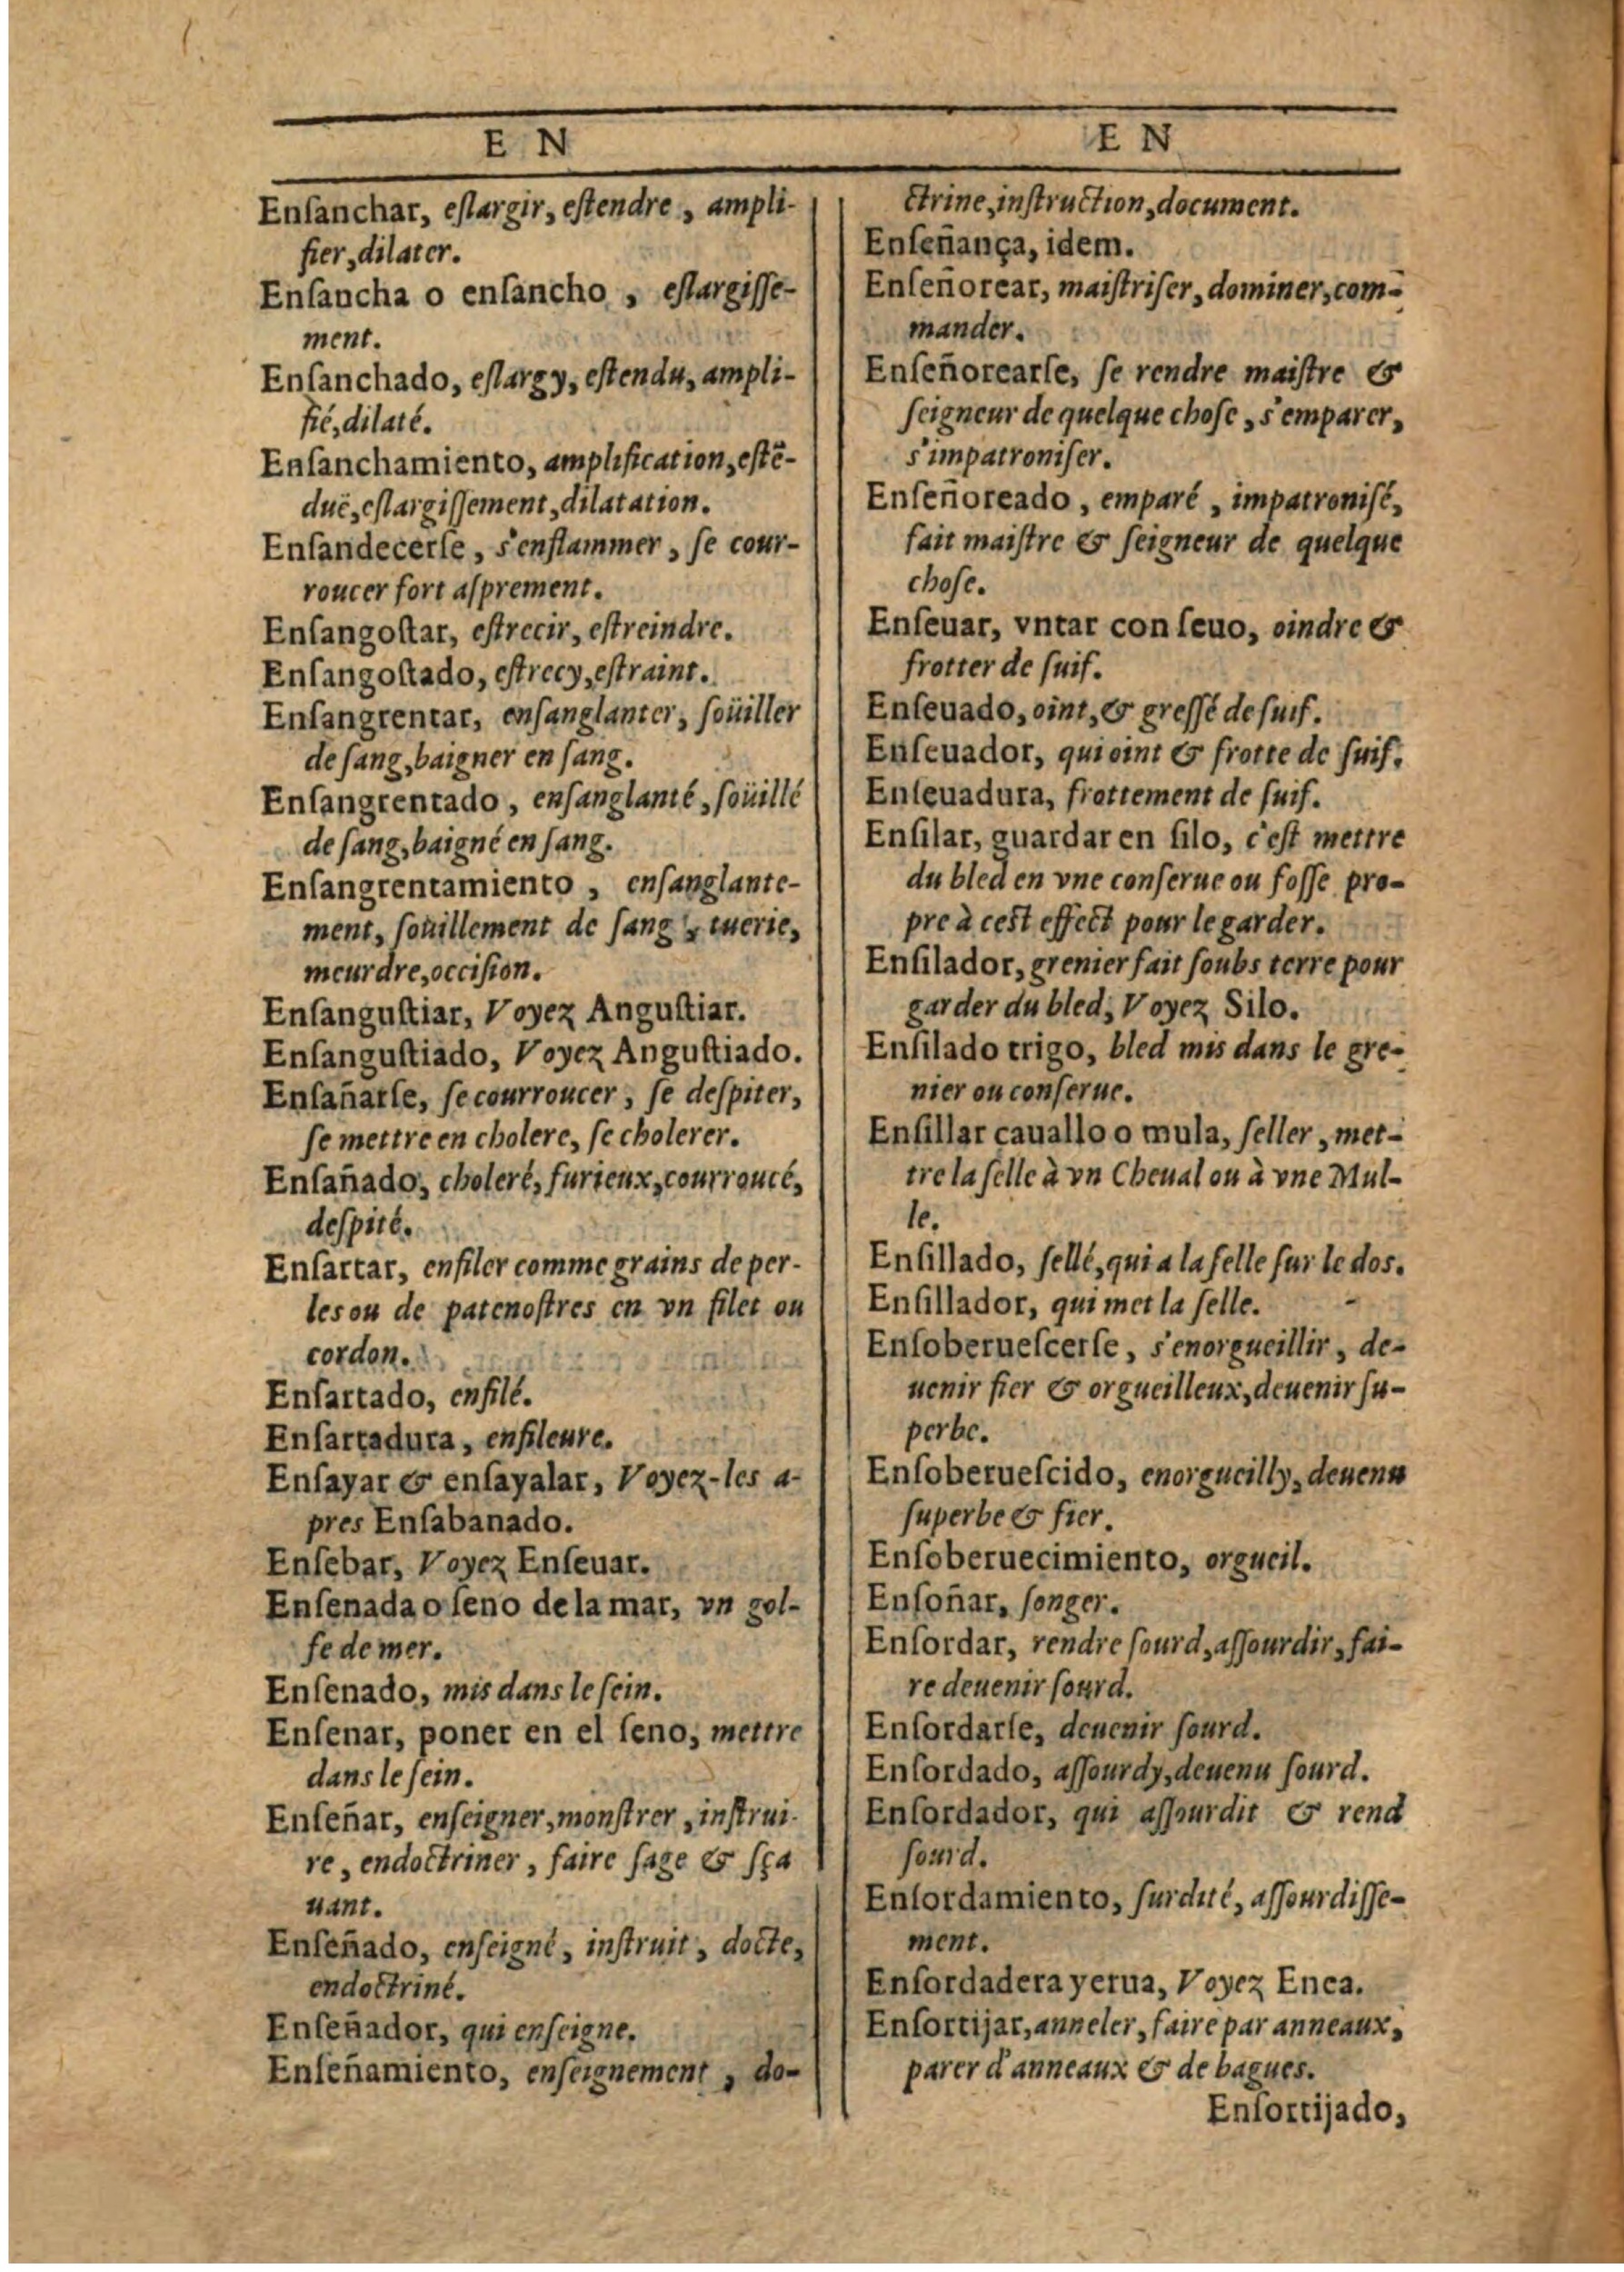 E N
Enſanchar, eſlargir, eſtendre, ampli-
fier, dilater.
Enſancha o enſancho, eſlargiſſe-
ment.
Enſanchado, eſlargy, eſtendu, ampli-
fié, dilaté.
Enſanchamiento, amplification, eſtẽ-
duë, eſlargiſſement, dilatation.
Enſandecerſe, s'enflammer, ſe cour-
roucer fort aſprement.
Enſangoſtar, eſtrecir, eſtreindre.
Enſangoſtado, eſtrecy, eſtraint.
Enſangrentar, enſanglanter, ſoüiller
de ſang, baigner en ſang.
Enſangrentado, enſanglanté, ſoüillé
de ſang, baigné en ſang.
Enſangrentamiento, enſanglante-
ment, ſoüillement de ſang, tuerie,
meurdre, occiſion.
Enſanguſtiar, Voyez Anguſtiar.
Enſanguſtiado, Voyez Anguſtiado.
Enſañarſe, ſe courroucer, ſe deſpiter,
ſe mettre en cholere, ſe cholerer.
Enſañado, choleré, furieux, courroucé,
deſpité.
Enſartar, enfiler comme grains de per-
les ou de patenoſtres en vn filet ou
cordon.
Enſartado, enfilé.
Enſartadura, enfileure.
Enſayar & enſayalar, Voyez-les a-
pres Enſabanado.
Enſebar, Voyez Enſeuar.
Enſenada o ſeno de la mar, vn gol-
fe de mer.
Enſenado, mis dans le ſein.
Enſenar, poner en el ſeno, mettre
dans le ſein.
Enſeñar, enſeigner, monſtrer, inſtrui-
re, endoctriner, faire ſage & ſça
uant.
Enſeñado, enſeigné, inſtruit, docte,
endoctriné.
Enſeñador, qui enſeigne.
Enſeñamiento, enſeignement, do-
E N
ctrine, inſtruction, document.
Enſeñança, idem.
Enſeñorear, maiſtriſer, dominer, com-
mander.
Enſeñorearſe, ſe rendre maiſtre &
ſeigneur de quelque choſe, s'emparer,
s'impatroniſer.
Enſeñoreado, emparé, impatroniſé,
fait maiſtre & ſeigneur de quelque
choſe.
Enſeuar, vntar con ſeuo, oindre &
frotter de ſuif.
Enſeuado, oint, & greſſé de ſuif.
Enſeuador, qui oint & frotte de ſuif.
Enſeuadura, frottement de ſuif.
Enſilar, guardar en ſilo, c'eſt mettre
du bled en vne conſerue ou foſſe pro-
pre à ceſt effect pour le garder.
Enſilador, grenier fait ſoubs terre pour
garder du bled, Voyez Silo.
Enſilado trigo, bled mis dans le gre-
nier ou conſerue.
Enſillar cauallo o mula, ſeller, met-
tre la ſelle à vn Cheual ou à vne Mul-
le.
Enſillado, ſellé, qui a la ſelle ſur le dos.
Enſillador, qui met la ſelle.
Enſoberueſcerſe, s'enorgueillir, de-
uenir fier & orgueilleux, deuenir ſu-
perbe.
Enſoberueſcido, enorgueilly, deuenu
ſuperbe & fier.
Enſoberuecimiento, orgueil.
Enſoñar, ſonger.
Enſordar, rendre ſourd, aſſourdir, fai-
re deuenir ſourd.
Enſordarſe, deuenir ſourd.
Enſordado, aſſourdy, deuenu ſourd.
Enſordador, qui aſſourdit & rend
ſourd.
Enſordamiento, ſurdité, aſſourdiſſe-
ment.
Enſordadera yerua, Voyez Enea.
Enſortijar, anneler, faire par anneaux,
parer d'anneaux & de bagues.
Enſortijado,